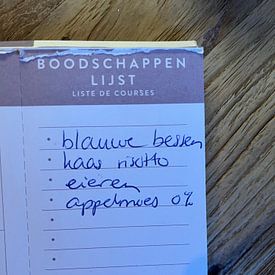 BOODSCHAPPEN
LIJST
LISTE DE COURSES
• blauwe bessen
• kaas risotto
• eieren
• appelmoes 0%